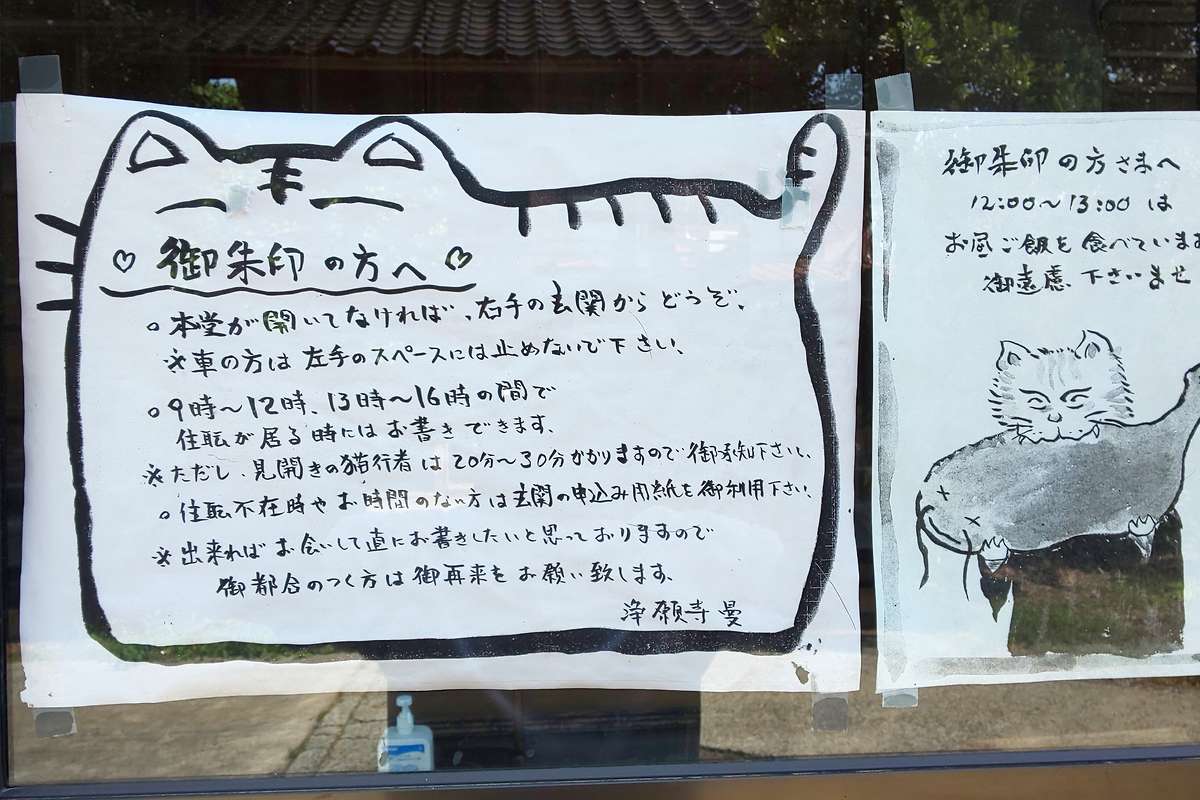 ♡御朱印の方へ♡
○本堂が開いてなければ、右手の玄関からどうぞ、
※車の方は左手のスペースには止めないで下さい、
○9時〜12時、13時〜16時の間で
住転が居る時にはお書きできます、
※ただし、見開きの猫行者は20分〜30分かかりますので御承知下さい、
○住転不在時やお時間のない方は玄関の申込み用紙を御利用下さい、
※出来ればお会いして直にお書きしたいと思っておりますので
御都合のつく方は御再来をお願い致します、
浄願寺 曼
御朱印の方さまへ
12:00〜13:00 は
お昼ご飯を食べていま
御遠慮下さいませ